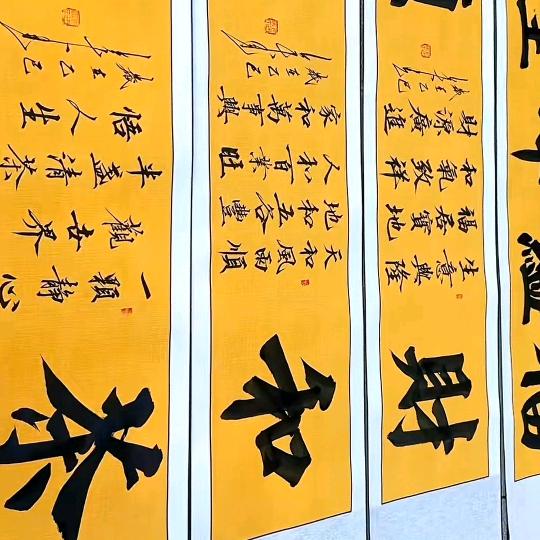 財
生意興隆
福居寶地
和氣致祥
財源廣進
歲在乙巳
和
天和風雨順
地和五谷豐
人和百業旺
家和萬事興
歲在乙巳
茶
一顆靜心
觀世界
半盞清茶
悟人生
歲在乙巳